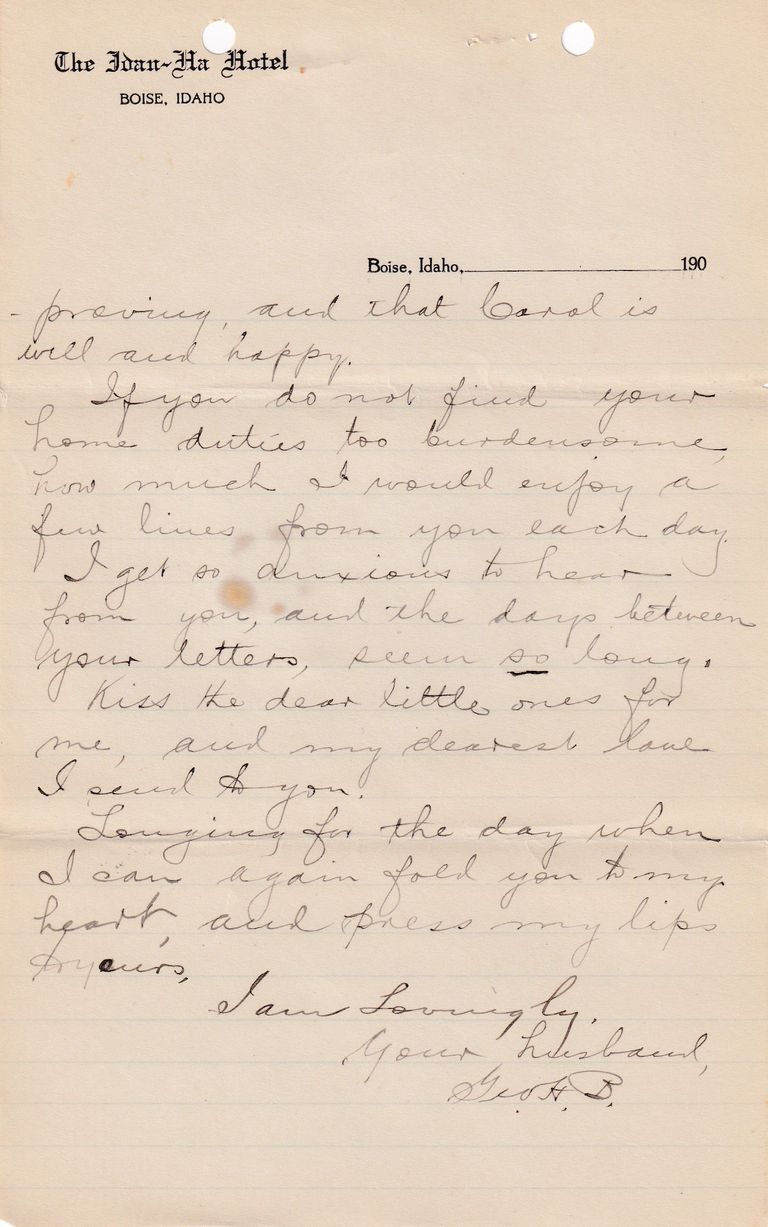 The Idan-Ha Hotel
BOISE, IDAHO
Boise, Idaho, 190
- proving, and that Carol is
well and happy.
If you do not find your
home duties too burdensome,
how much I would enjoy a
few lines from you each day.
I get so anxious to hear
from you, and the days between
your letters, seem so long.
Kiss the dear little ones for
me, and my dearest love
I send to you.
Longing for the day when
I can again fold you to my
heart, and press my lips
to yours,
I am Lovingly,
Your husband,
Geo. H. B.